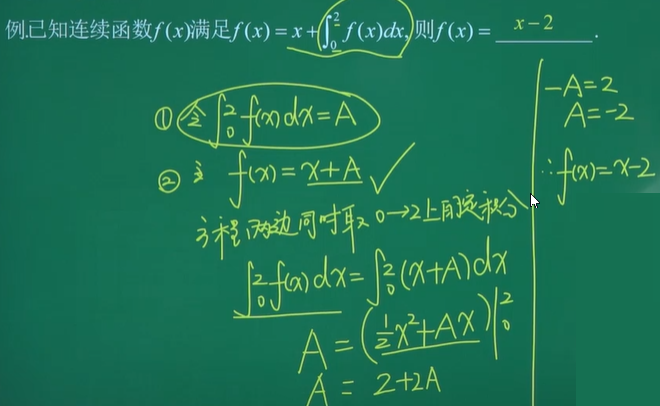 例.已知连续函数f(x)满足f(x)=x+∫₀²f(x)dx,则f(x)= x-2 .
① 令∫₀²f(x)dx=A
② 主 f(x)=x+A ✓
方程两边同时取0→2上的定积分
∫₀²f(x)dx=∫₀²(x+A)dx
A=(½x²+Ax)|₀²
A=2+2A
-A=2
A=-2
∴f(x)=x-2